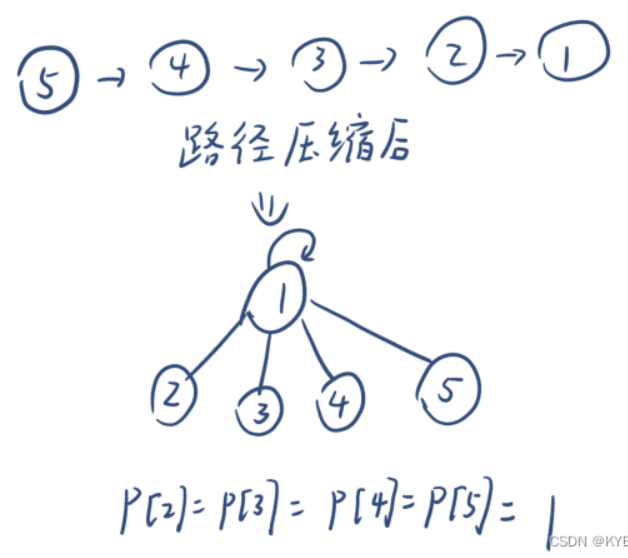 5 → 4 → 3 → 2 → 1
路径压缩后
1
2 3 4 5
P[2]= P[3]= P[4]=P[5]= 1
CSDN @KYE